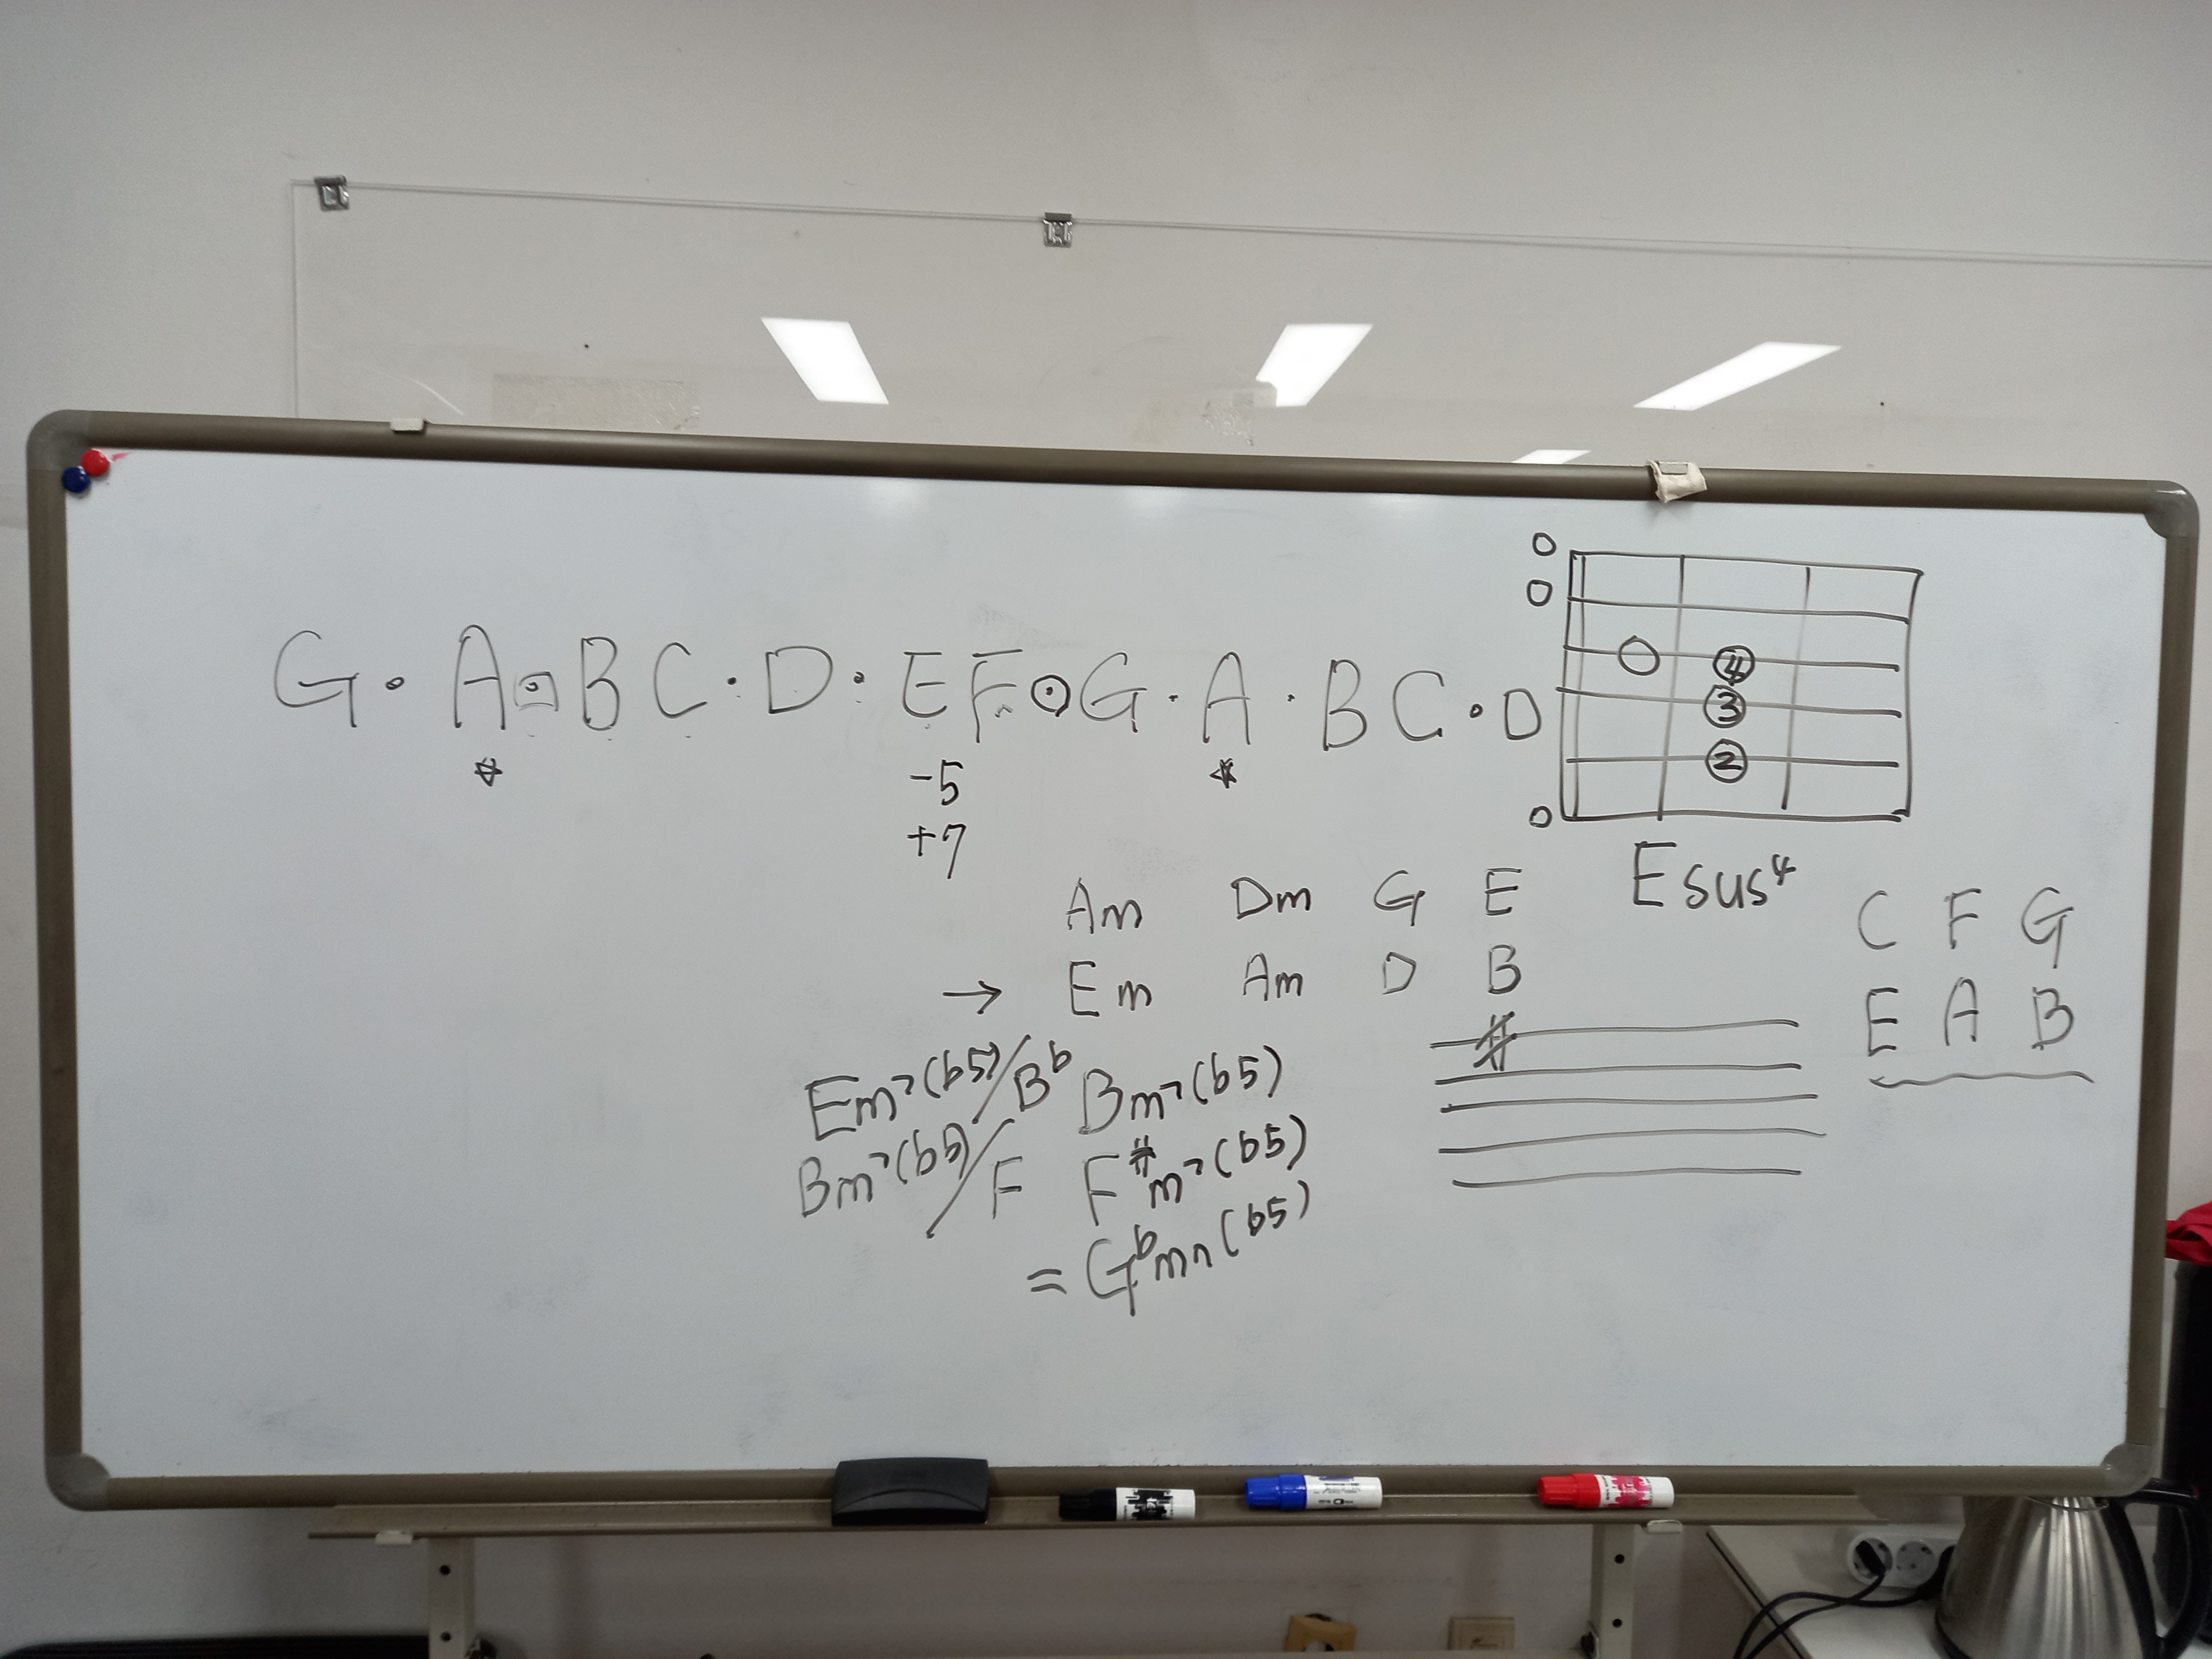 G · A · B C · D · E F · G · A · B C · D
-5
+7
O
O
4
3
2
O
E sus4
Am Dm G E
→ Em Am D B
#
C F G
E A B
Em7(b5)/Bb Bm7(b5)
Bm7(b5)/F F#m7(b5)
= Gbm7(b5)